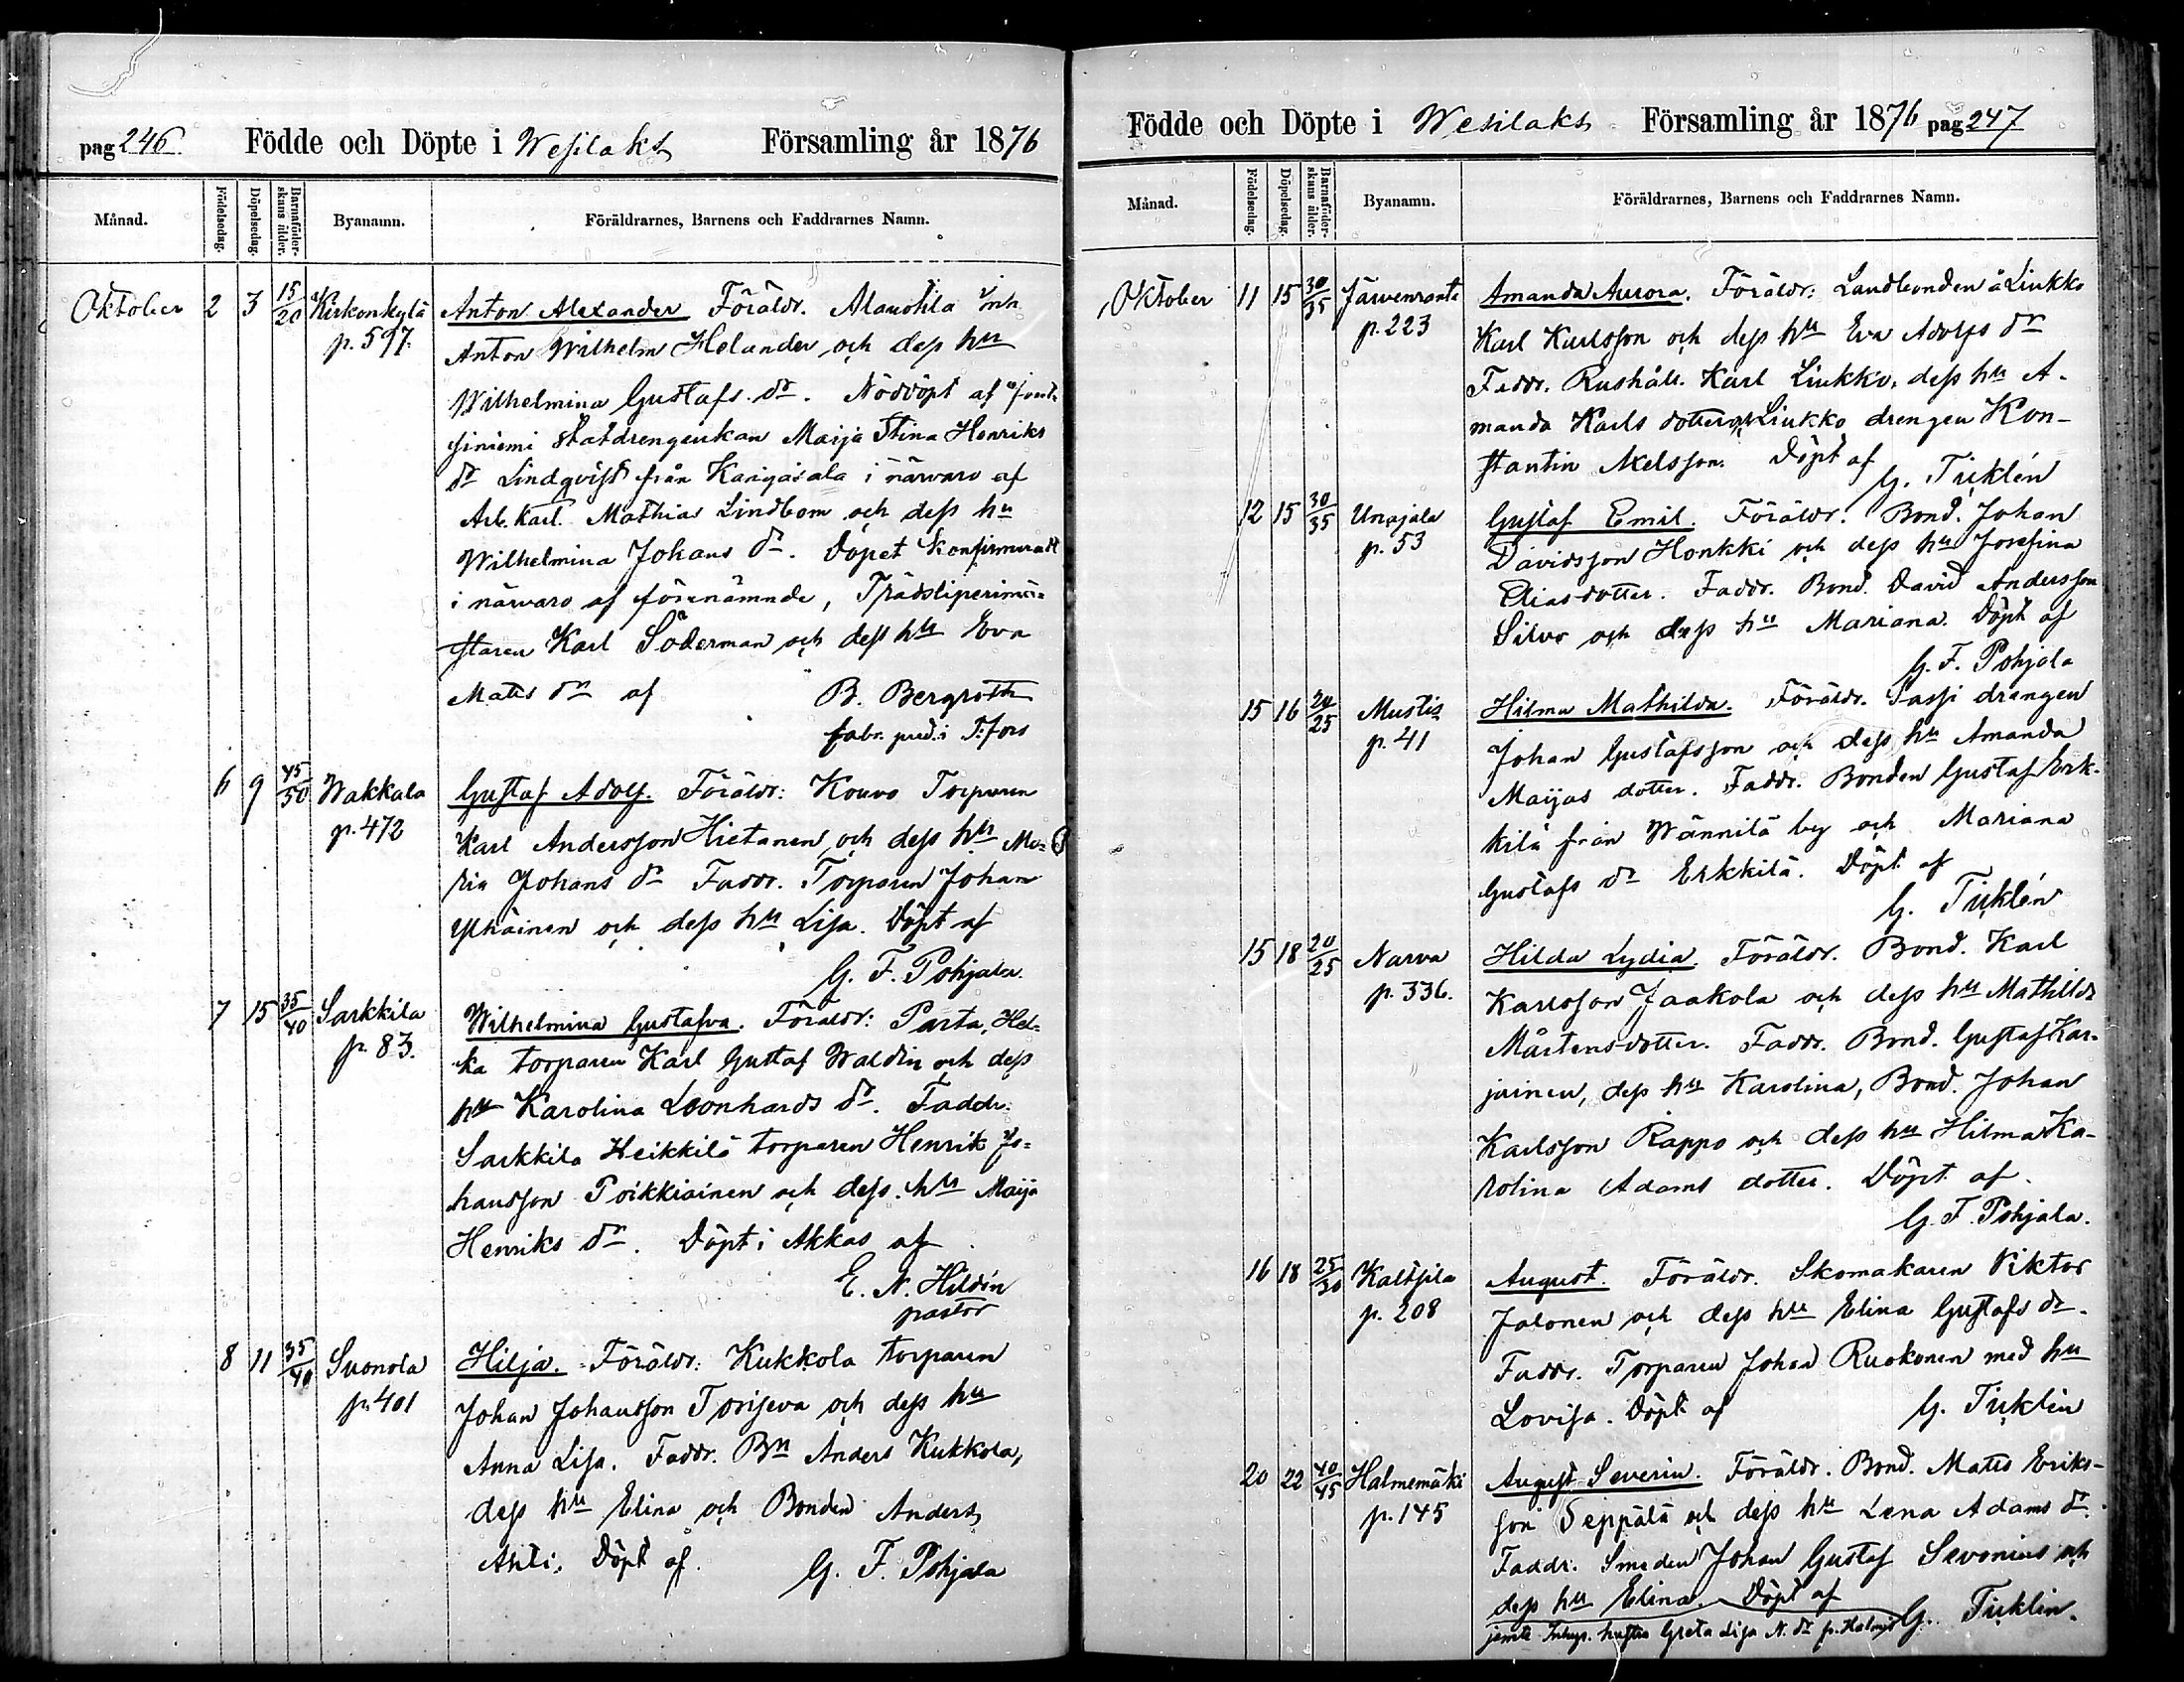 pag 246 Födde och Döpte i Wesilaks Församling år 1876
Månad. Födelsedag. Döpelsedag. Barnaföderskans ålder. Byanamn. Föräldrarnes, Barnens och Faddrarnes Namn.
Oktober 2 3 15/20 Kirkonkylä p. 597. Anton Alexander Föräldr. Alanotila inh
Anton Wilhelm Helander och dess hu
Wilhelmina Gustafs dr. Nöddöpt af
statdrengenkan Maija Stina Henriks
dr Lindqvist från Kangasala i närvaro af
Arb. karl. Mathias Lindbom och dess hu
Wilhelmina Johans dr. Döpet konfirmeradt
i närvaro af förenämnde, Trädsliperimä-
staren Karl Söderman och dess hu Eva
Mats dr af B. Bergroth
fabr. pred. i T:fors
6 9 45/50 Wakkala p. 472 Gustaf Adolf. Föräldr: Kouvo Torparen
Karl Andersson Hietanen och dess hu Ma-
ria Johans dr Faddr. Torparen Johan
Ylhäinen och dess hu Lisa. Döpt af
G. F. Pohjala.
7 15 35/40 Sarkkila p. 83. Wilhelmina Gustafva. Föräldr: Parta, Hel-
ka torparen Karl Gustaf Waldin och dess
hu Karolina Leonhards dr. Faddr.
Sarkkila Heikkilä torparen Henrik Jo-
hansson Poikkiainen och dess hu Maija
Henriks dr. Döpt i Akkas af
E. N. Hildén
pastor
8 11 35/40 Suonola p. 401 Hilja. Föräldr: Kukkola torparen
Johan Johansson Toriseva och dess hu
Anna Lisa. Faddr. Bn Anders Kukkola,
dess hu Elina och Bonden Anders
Ahti. Döpt af. G. F. Pohjala
Födde och Döpte i Wesilaks Församling år 1876 pag 247
Månad. Födelsedag. Döpelsedag. Barnaföderskans ålder. Byanamn. Föräldrarnes, Barnens och Faddrarnes Namn.
Oktober 11 15 30/35 Järvenranta p. 223 Amanda Aurora. Föräldr: Landbonden å Liukko
Karl Karlsson och dess hu Eva Adolfs dr
Faddr. Rushåll. Karl Liukko, dess hu A-
manda Karls dotter och Liukko drengen Kon-
stantin Axelsson. Döpt af
G. Ticklén
12 15 30/35 Unajala p. 53 Gustaf Emil. Föräldr. Bond. Johan
Davidsson Honkki och dess hu Josefina
Eliasdotter. Faddr. Bond. David Andersson
Silvo och dess hu Mariana. Döpt af
G. F. Pohjala
15 16 24/25 Mustis p. 41 Hilma Mathilda. Föräldr. Sassi drängen
Johan Gustafsson och dess hu Amanda
Maijas dotter. Faddr. Bonden Gustaf Erk-
kilä från Wännilä by och Mariana
Gustafs dr Erkkilä. Döpt af
G. Ticklén
15 18 20/25 Narva p. 336. Hilda Lydia. Föräldr. Bond. Karl
Karlsson Jaakola och dess hu Mathilda
Mårtensdotter. Faddr. Bond. Gustaf Kar-
jainen, dess hu Karolina, Bond. Johan
Karlsson Rappo och dess hu Hilma Ka-
rolina Adams dotter. Döpt af.
G. F. Pohjala.
16 18 25/30 Kaltsila p. 208 August. Föräldr. Skomakaren Viktor
Jalonen och dess hu Elina Gustafs dr.
Faddr. Torparen Johan Ruokonen med hu
Lovisa. Döpt af G. Ticklén
20 22 40/45 Halmemäki p. 145 August Severin. Föräldr. Bond. Mats Eriks-
son Seppälä och dess hu Lena Adams dr.
Faddr. Smeden Johan Gustaf Sevonius och
dess hu Elina. Döpt af
jemte Inhys. hustru Greta Lisa N. dr fr. G. Ticklén.